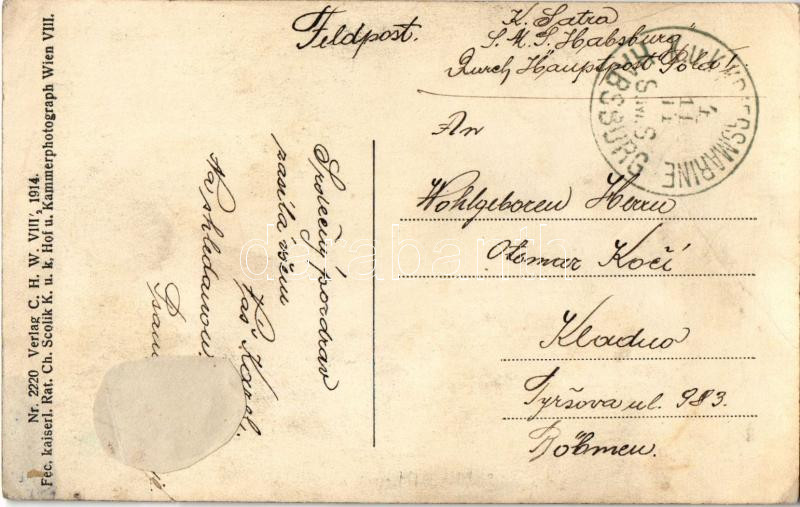 Feldpost.
K. Satra
S. M. S. "Habsburg"
Durch Hauptpost Pola!
K. u. K. KRIEGSMARINE
S.M.S.
HABSBURG
An
Wohlgeboren Herrn
Otomar Kočí
Kladno
Tyršova ul. 983.
Böhmen.
Srdečný pozdrav
zasílá všem
Váš Karel.
Na shledanou
Nr. 2220 Verlag C. H. W. VIII/2 1914.
Fec. kaiserl. Rat. Ch. Scolik K. u. k. Hof u. Kammerphotograph Wien VIII.
darabanth